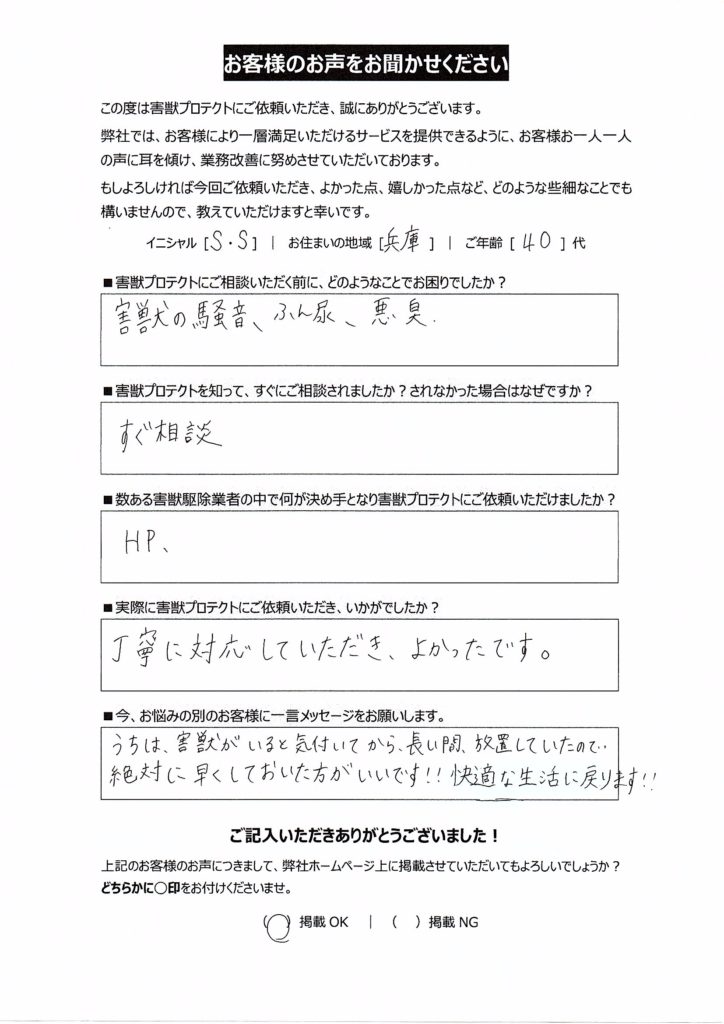 お客様のお声をお聞かせください
この度は害獣プロテクトにご依頼いただき、誠にありがとうございます。
弊社では、お客様により一層満足いただけるサービスを提供できるように、お客様お一人一人
の声に耳を傾け、業務改善に努めさせていただいております。
もしよろしければ今回ご依頼いただき、よかった点、嬉しかった点など、どのような些細なことでも
構いませんので、教えていただけますと幸いです。
イニシャル [ S・S ] | お住まいの地域 [ 兵庫 ] | ご年齢 [ 40 ] 代
■害獣プロテクトにご相談いただく前に、どのようなことでお困りでしたか?
害獣の騒音、ふん尿、悪臭.
■害獣プロテクトを知って、すぐにご相談されましたか?されなかった場合はなぜですか?
すぐ相談
■数ある害獣駆除業者の中で何が決め手となり害獣プロテクトにご依頼いただけましたか?
HP、
■実際に害獣プロテクトにご依頼いただき、いかがでしたか?
丁寧に対応していただき、よかったです。
■今、お悩みの別のお客様に一言メッセージをお願いします。
うちは、害獣がいると気付いてから、長い間、放置していたので‥
絶対に早くしておいた方がいいです!! 快適な生活に戻ります!!
ご記入いただきありがとうございました!
上記のお客様のお声につきまして、弊社ホームページ上に掲載させていただいてもよろしいでしょうか?
どちらかに○印をお付けくださいませ。
(○) 掲載 OK | ( ) 掲載 NG